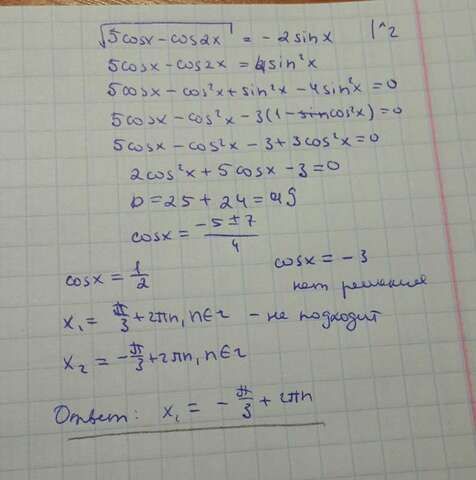 √5cosx - cos2x = - 2sinx |^2
5cosx - cos2x = 4sin²x
5cosx - cos²x + sin²x - 4sin²x = 0
5cosx - cos²x - 3(1 - cos²x) = 0
5cosx - cos²x - 3 + 3cos²x = 0
2cos²x + 5cosx - 3 = 0
D = 25 + 24 = 49
cosx = (-5 ± 7)/4
cosx = 1/2 cosx = -3
нет решения
x₁ = π/3 + 2πn, n∈z - не подходит
x₂ = -π/3 + 2πn, n∈z
Ответ: x₁ = - π/3 + 2πn